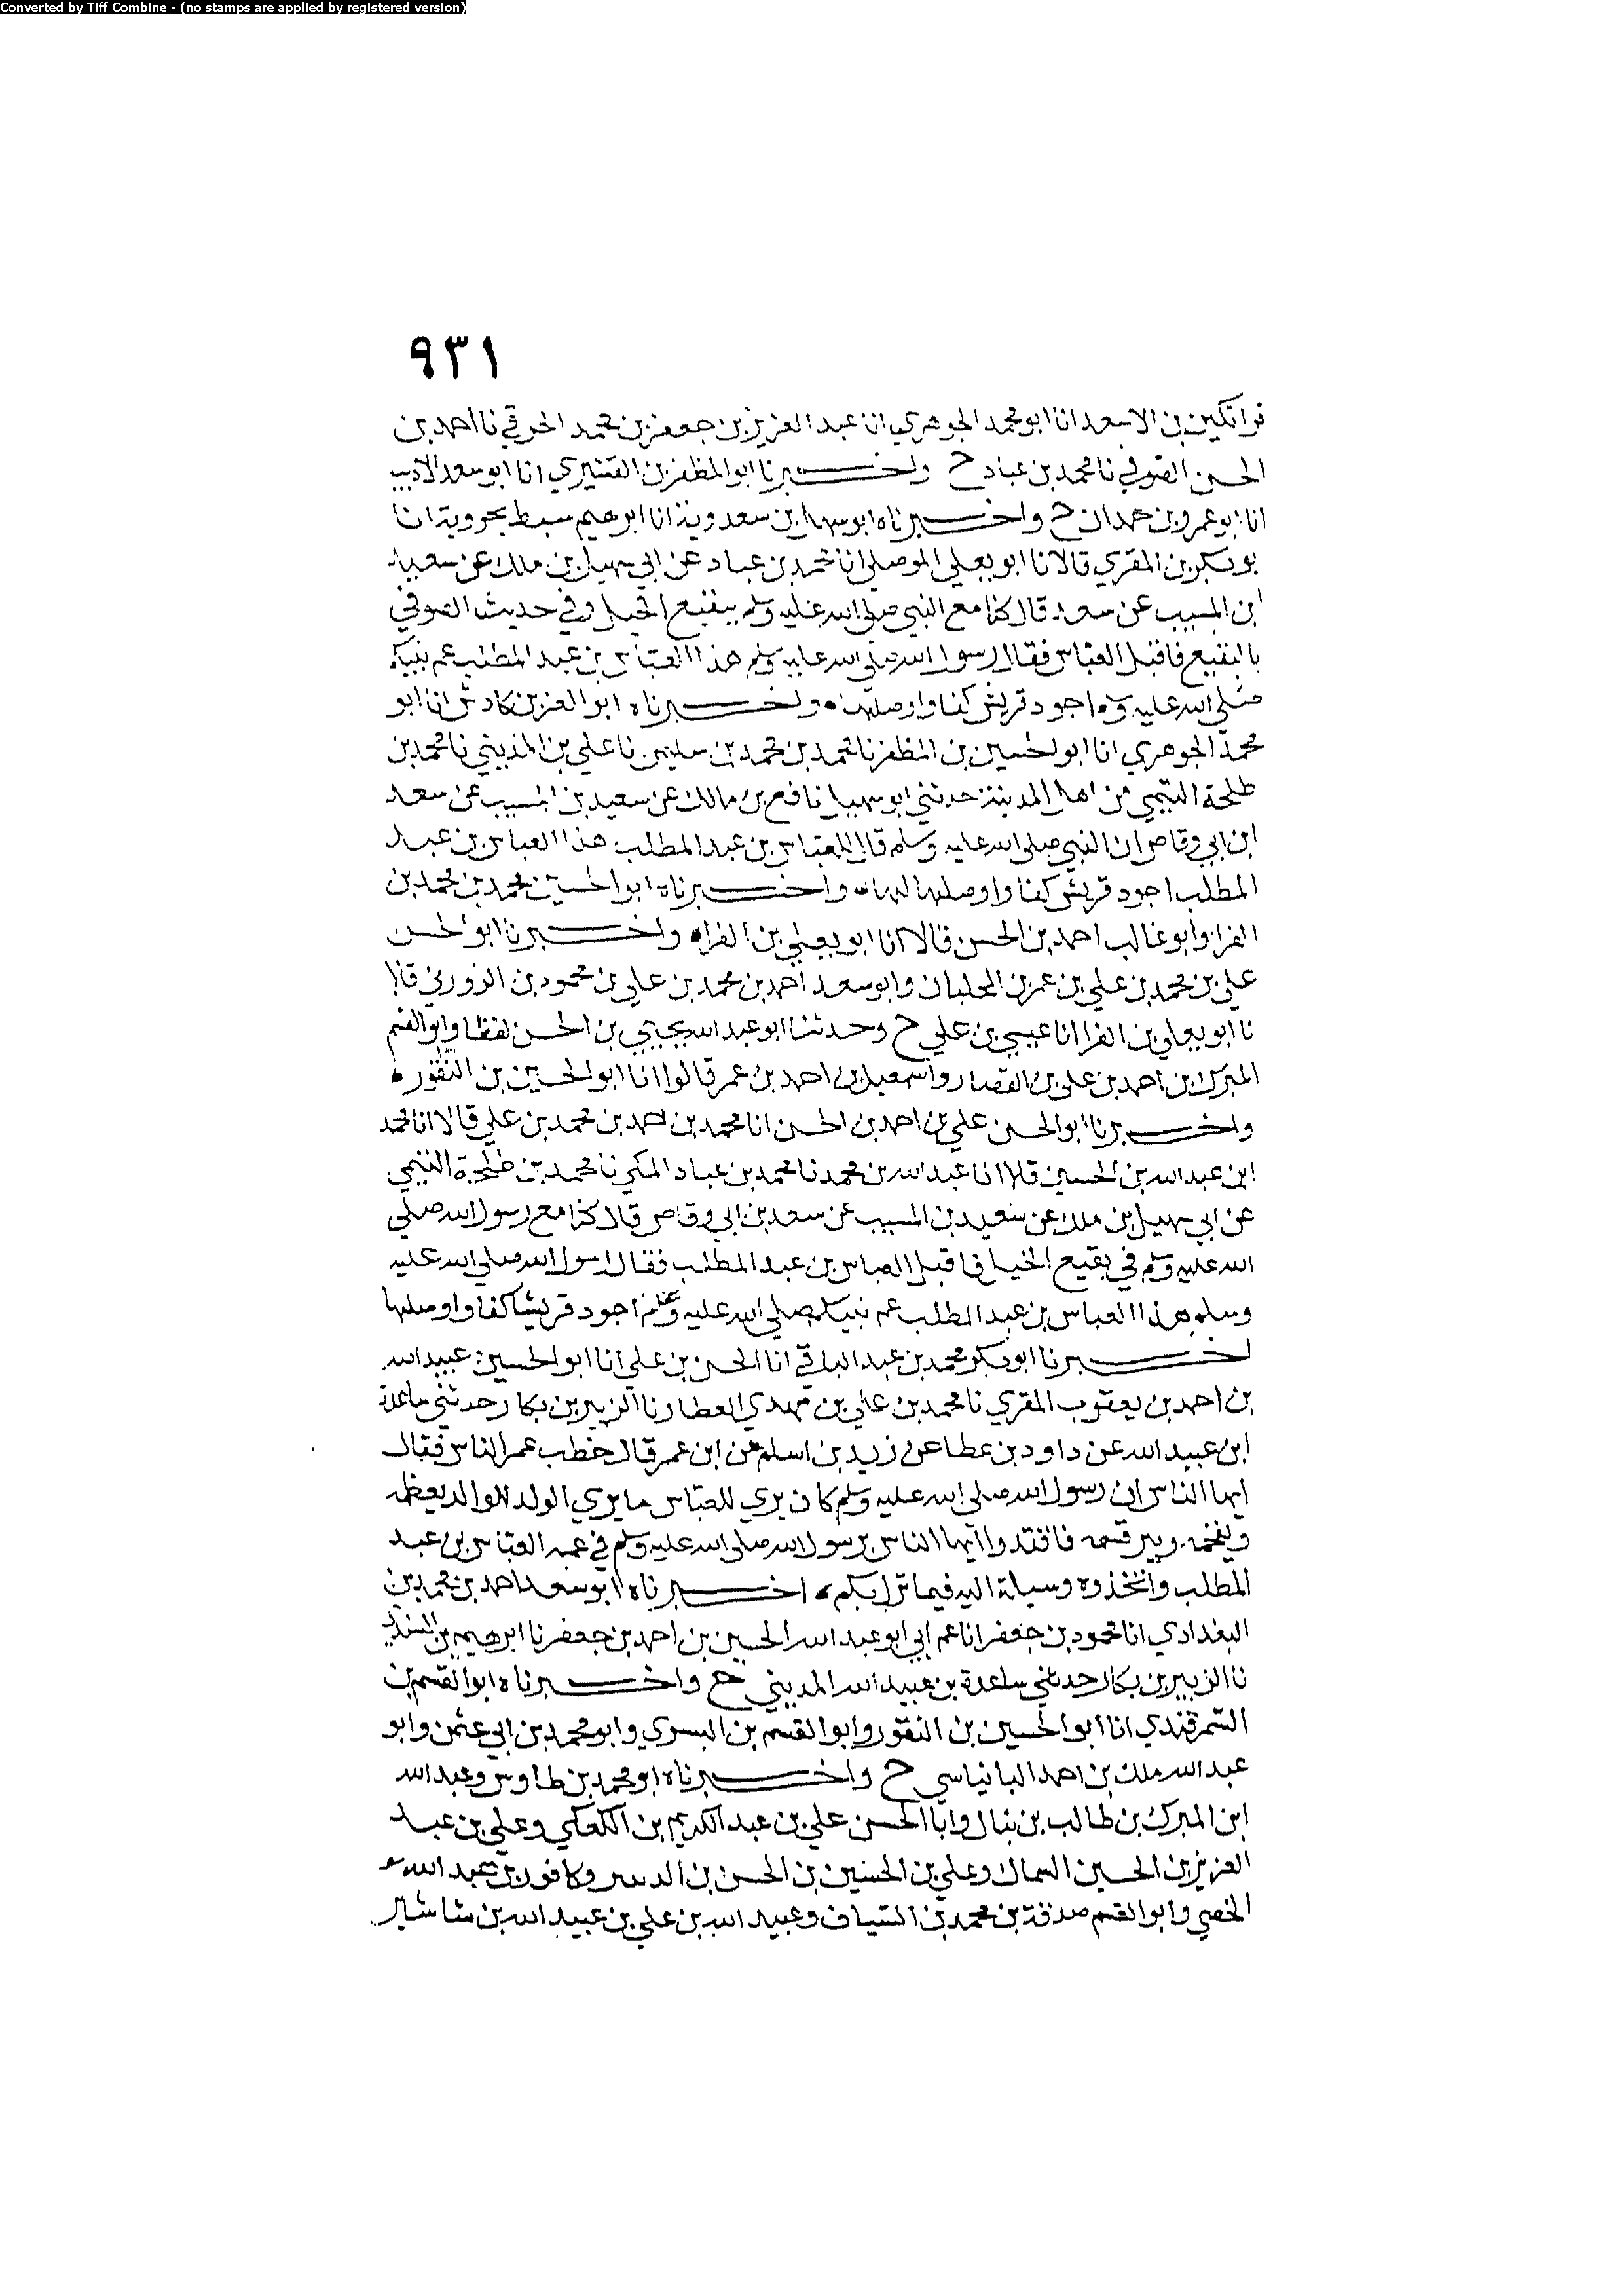 Converted by Tiff Combine - (no stamps are applied by registered version)
٩٣١
قراتكين بن الاسعد انا ابو محمد الجوهري انا عبد العزيز بن جعفر بن محمد الخرقي نا احمد بن
الحسن الصوفي نا محمد بن عباد ح واخبرنا ابو المظفر بن القشيري انا ابو سعد الاديب
انا ابو عمرو بن حمدان ح واخبرناه ابو سهل بن سعدوية انا ابرهيم سبط بحروية انا
بو بكر بن المقري قالا نا ابو يعلي الموصلي انا محمد بن عباد عن ابي سهيل بن ملك عن سعيد
ابن المسيب عن سعد قال كنا مع النبي صلي الله عليه وسلم ببقيع الخيل وفي حديث الصوفي
بالبقيع فاقبل العباس فقال رسول الله صلي الله عليه وسلم هذا العباس بن عبد المطلب عم نبيكم
صلي الله عليه وسلم اجود قريش كفا واوصلها واخبرناه ابو العز بن كادش انا ابو
محمد الجوهري انا ابو الحسين بن المظفر نا محمد بن محمد بن سليمن نا علي بن المديني نا محمد بن
طلحة التيمي من اهل المدينة حدثني ابو سهيل نافع بن مالك عن سعيد بن المسيب عن سعد
ابن ابي وقاص ان النبي صلي الله عليه وسلم قال للعباس بن عبد المطلب هذا العباس بن عبد
المطلب اجود قريش كفا واوصلها لها واخبرناه ابو الحسين محمد بن محمد بن
الفرا وابو غالب احمد بن الحسن قالا انا ابو يعلي بن الفراه واخبرنا ابو الحسن
علي بن محمد بن علي بن عمر بن الجلبان وابو سعد احمد بن محمد بن علي بن محمود بن الزوزني قالا
نا ابو يعلي بن الفرا انا عيسي بن علي ح وحدثنا ابو عبد الله يحيي بن الحسن لفظا وابو القسم
المبرك بن احمد بن علي بن القصار واسمعيل بن احمد بن عمر قالوا انا ابو الحسين بن النقور
واخبرنا ابو الحسن علي بن احمد بن الحسن انا محمد بن احمد بن محمد بن علي قالا انا محمد
ابن عبد الله بن الحسين قالا انا عبد الله بن محمد نا محمد بن عباد المكي نا محمد بن طلحة التيمي
عن ابي سهيل بن ملك عن سعيد بن المسيب عن سعد بن ابي وقاص قال كنا مع رسول الله صلي
الله عليه وسلم في بقيع الخيل فاقبل العباس بن عبد المطلب فقال رسول الله صلي الله عليه
وسلم هذا العباس بن عبد المطلب عم نبيكم صلي الله عليه وسلم اجود قريشا كفا واوصلها
اخبرنا ابو بكر محمد بن عبد الباقي انا الحسن بن علي انا ابو الحسين عبيد الله
بن احمد بن يعقوب المقري نا محمد بن علي بن مهدي العطار نا الزبير بن بكار حدثني ساعدة
ابن عبيد الله عن داود بن عطا عن زيد بن اسلم عن ابن عمر قال خطب عمر الناس فقال
ايها الناس ان رسول الله صلي الله عليه وسلم كان يري للعباس ما يري الولد للوالد يعظمه
ويفخمه ويبر قسمه فاقتدوا ايها الناس برسول الله صلي الله عليه وسلم في عمه العباس بن عبد
المطلب واتخذوه وسيلة اليه فيما نزل بكم اخبرناه ابو سعد احمد بن محمد بن
البغدادي انا محمود بن جعفر انا عم ابي ابو عبد الله الحسين بن احمد بن جعفر نا ابرهيم بن السندي
نا الزبير بن بكار حدثني ساعدة بن عبيد الله المديني ح واخبرناه ابو القسم بن
السمرقندي انا ابو الحسين بن النقور وابو القسم بن البسري وابو محمد بن ابي عثمن وابو
عبد الله ملك بن احمد البانياسي ح واخبرناه ابو محمد بن طاوس وعبد الله
ابن المبرك بن طالب بن نبال وابا الحسن علي بن عبد الكريم بن الكعكي وعلي بن عبد
العزيز بن الحسين السماك وعلي بن الحسين بن الحسن بن وكافور بن عبد الله
الخصي وابو القسم صدقة بن محمد بن السياف وعبيد الله بن علي بن عبيد الله بن شاشير